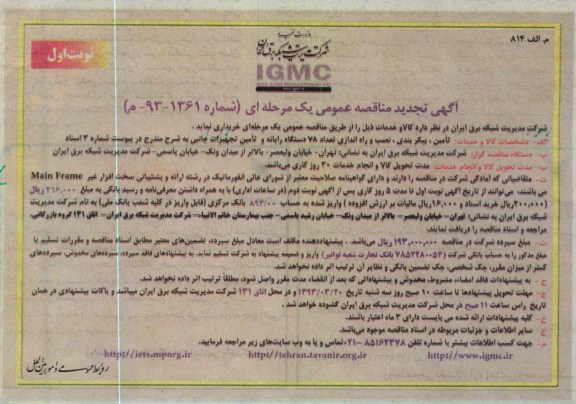 م. الف ۸۱۴
نوبت اول
وزارت نیرو
شرکت مدیریت شبکه برق ایران
IGMC
آگهی تجدید مناقصه عمومی یک مرحله ای (شماره ۱۳۶۱-۹۳- م)
شرکت مدیریت شبکه برق ایران در نظر دارد کالا و خدمات ذیل را از طریق مناقصه عمومی یک مرحله‌ای خریداری نماید .
الف- مشخصات کالا و خدمات: تأمین ، پیکر بندی ، نصب و راه اندازی تعداد ۷۸ دستگاه رایانه و تأمین تجهیزات جانبی به شرح مندرج در پیوست شماره ۳ اسناد
ب- دستگاه مناقصه گزار: شرکت مدیریت شبکه برق ایران به نشانی: تهران- خیابان ولیعصر- بالاتر از میدان ونک- خیابان یاسمی- شرکت مدیریت شبکه برق ایران
پ- مدت تحویل کالا و انجام خدمات: مدت تحویل کالا و انجام خدمات ۳۰ روز کاری می‌باشد.
ت- متقاضیانی که آمادگی شرکت در مناقصه را دارند و دارای گواهینامه صلاحیت معتبر از شورای عالی انفورماتیک در رشته ارائه و پشتیبانی سخت افزار غیر Main Frame
می باشند، می‌توانند از تاریخ آگهی نوبت اول تا مدت ۵ روز کاری پس از آگهی نوبت دوم (در ساعات اداری) با به همراه داشتن معرفی‌نامه و رسید بانکی به مبلغ ۲۱۶,۰۰۰ ریال
(۲۰۰,۰۰۰ریال خرید اسناد و ۱۶,۰۰۰ ریال مالیات بر ارزش افزوده ) واریز شده به حساب ۸۹۳/۰۰ بانک مرکزی (قابل واریز در کلیه شعب بانک ملی) به نام شرکت مدیریت
شبکه برق ایران به نشانی: تهران- خیابان ولیعصر- بالاتر از میدان ونک- خیابان رشید یاسمی- جنب بیمارستان خاتم الانبیاء- شرکت مدیریت شبکه برق ایران- اتاق ۱۳۱ گروه بازرگانی،
مراجعه و اسناد مناقصه را دریافت نمایند.
ث- مبلغ سپرده شرکت در مناقصه ۱۹۳,۰۰۰,۰۰۰ ریال می‌باشد. پیشنهاددهنده مکلف است معادل مبلغ سپرده، تضمین‌های معتبر مطابق اسناد مناقصه و مقررات تسلیم یا
مبلغ مذکور را به حساب بانکی شرکت (۷۸۵۲۲۸۰۰۵۴ بانک تجارت شعبه توانیر) واریز و ضمیمه پیشنهاد به شرکت تسلیم نماید. به پیشنهادهای فاقد سپرده، سپرده‌های مخدوش، سپرده‌های
کمتر از میزان مقرر، چک شخصی، چک تضمین بانکی و نظایر آن ترتیب اثر داده نخواهد شد.
ج- به پیشنهادات فاقد امضاء، مشروط، مخدوش و پیشنهاداتی که بعد از انقضاء مدت مقرر واصل شود، مطلقاً ترتیب اثر داده نخواهد شد.
چ- مهلت تحویل پیشنهادها تا ساعت ۱۰ صبح روز سه شنبه تاریخ ۱۳۹۳/۰۳/۲۰ و در محل اتاق ۱۳۱ شرکت مدیریت شبکه برق ایران میباشد و پاکات پیشنهادی در همان
تاریخ راس ساعت ۱۱ صبح در محل شرکت مدیریت شبکه برق ایران گشوده خواهد شد .
ح- کلیه پیشنهادات ارائه شده می بایست دارای ۳ ماه اعتبار باشند.
خ- سایر اطلاعات و جزئیات مربوطه در اسناد مناقصه موجود می‌باشد.
م- جهت کسب اطلاعات بیشتر با شماره تلفن ۸۵۱۶۲۳۷۸-۰۲۱ تماس و یا به وب سایت‌های زیر مراجعه فرمایید.
http://www.igmc.ir http//tehran.tavanir.org.ir http//iets.mporg.ir
روابط عمومی و امور بین الملل